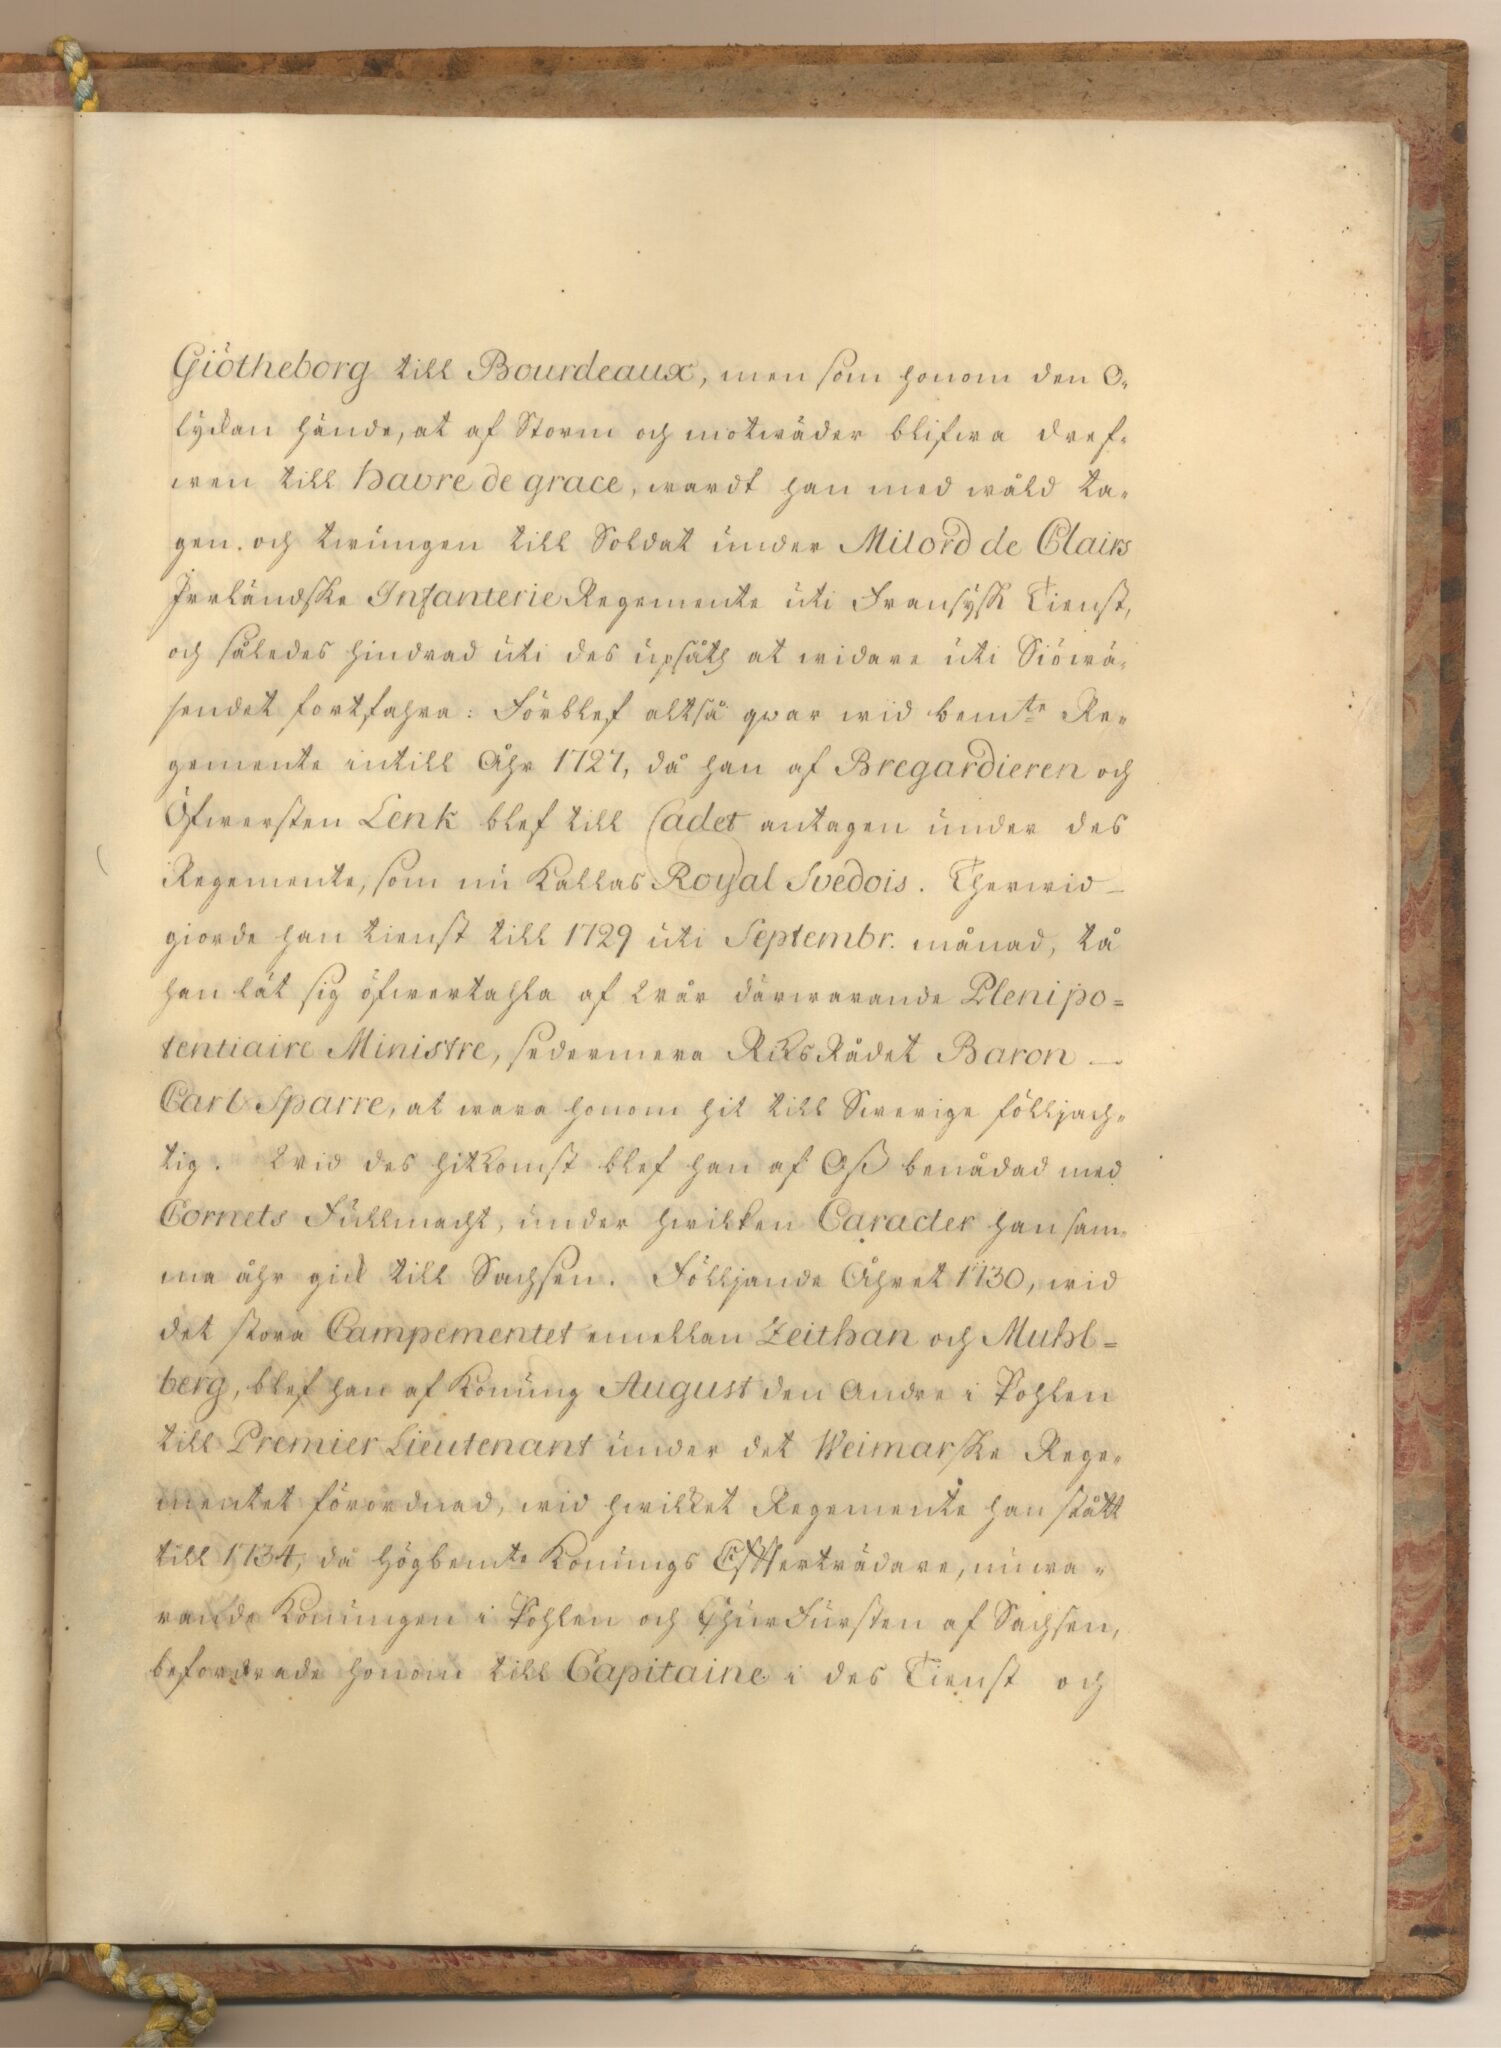 Giötheborg till Bourdeaux, men som honom den O-
lyckan hände, at af Storm och motwäder blifwa dref-
wen till havre de grace, wardt han med wåld ta-
gen och twungen till Soldat under Milord de Clairs
Irrländske Infanterie Regemente uti Fransysk Tienst,
och således hindrad uti des upsåth at widare uti Siöwä-
sendet fortfahra: Förblef altså qwar wid bemte Re-
gemente intill Åhr 1727, då han af Bregardieren och
Öfwersten Lenk blef till Cadet antagen under des
Regemente, som nu Kallas Royal Svedois. Therwid
giorde han tienst till 1729 uti Septembr. månad, tå
han lät sig öfwertahla af wår därwarande Plenipo=
tentiaire Ministre, sedermera RiksRådet Baron
Carl Sparre, at wara honom hit till Swerige följach-
tig. Wid des hitkomst blef han af Oß benådad med
Cornets Fullmacht, under hwilken Caracter han sam-
ma åhr gick till Sachsen. Följjande Åhret 1730, wid
det stora Campementet emellan Zeithan och Muhl=
berg, blef han af Konung August den Andre i Pohlen
till Premier Lieutenant under det Weimarske Rege-
mentet förordnad, wid hwilket Regemente han stått
till 1734, då Högbemte Konungs Effterträdare, nuwa-
rande Konungen i Pohlen och ChurFursten af Sachsen,
befordrade honom till Capitaine i des Tienst och